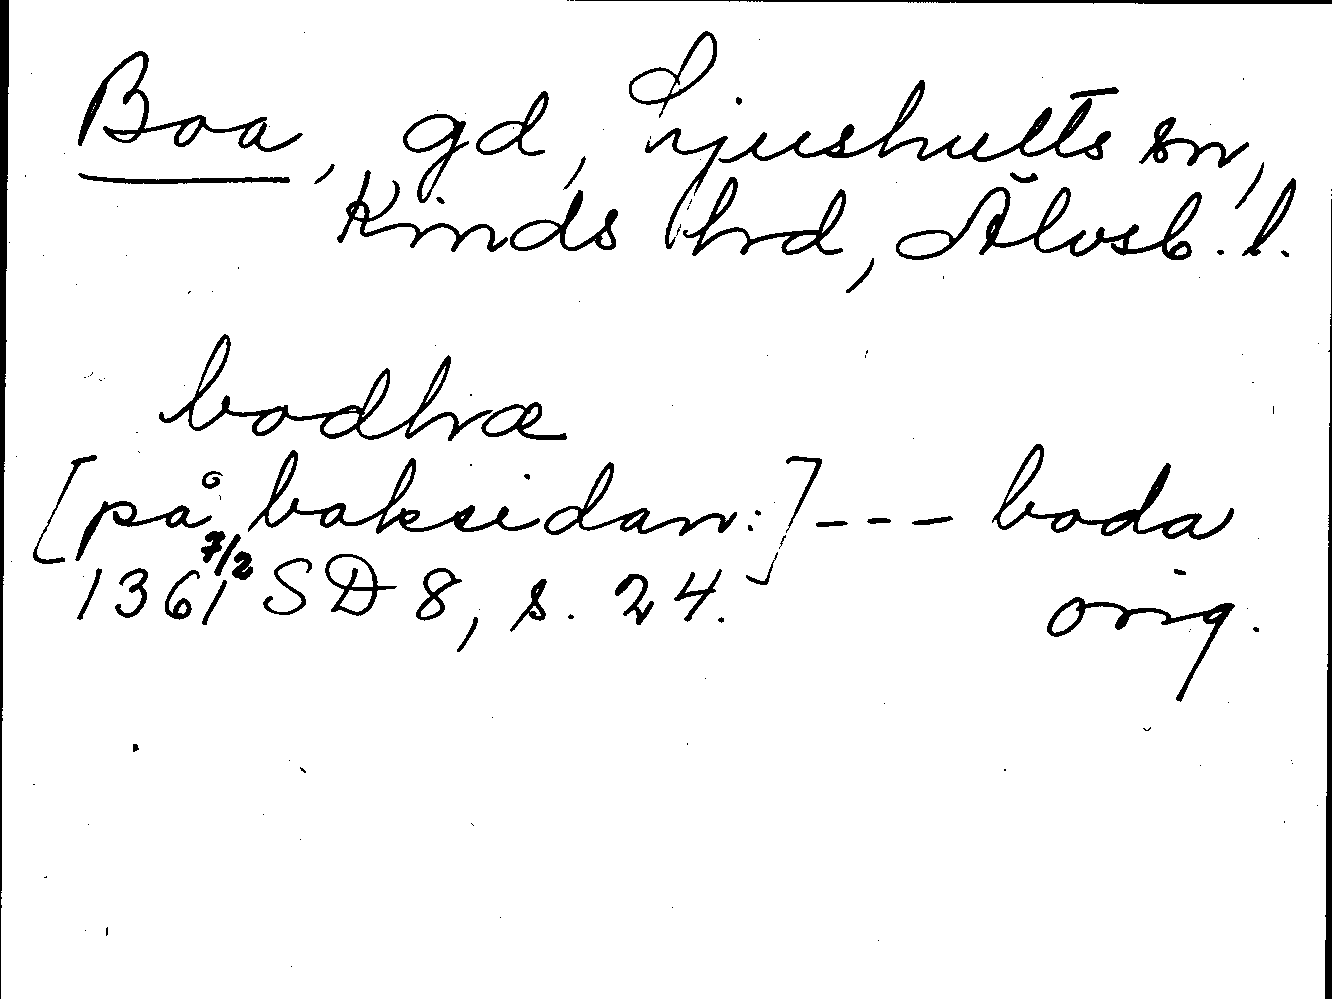 Boa, gd, Ljushults sn,
Kinds hrd, Älvsb. l.
bodhæ
[på baksidan:] --- boda
1361 7/2 SD 8, s. 24. orig.